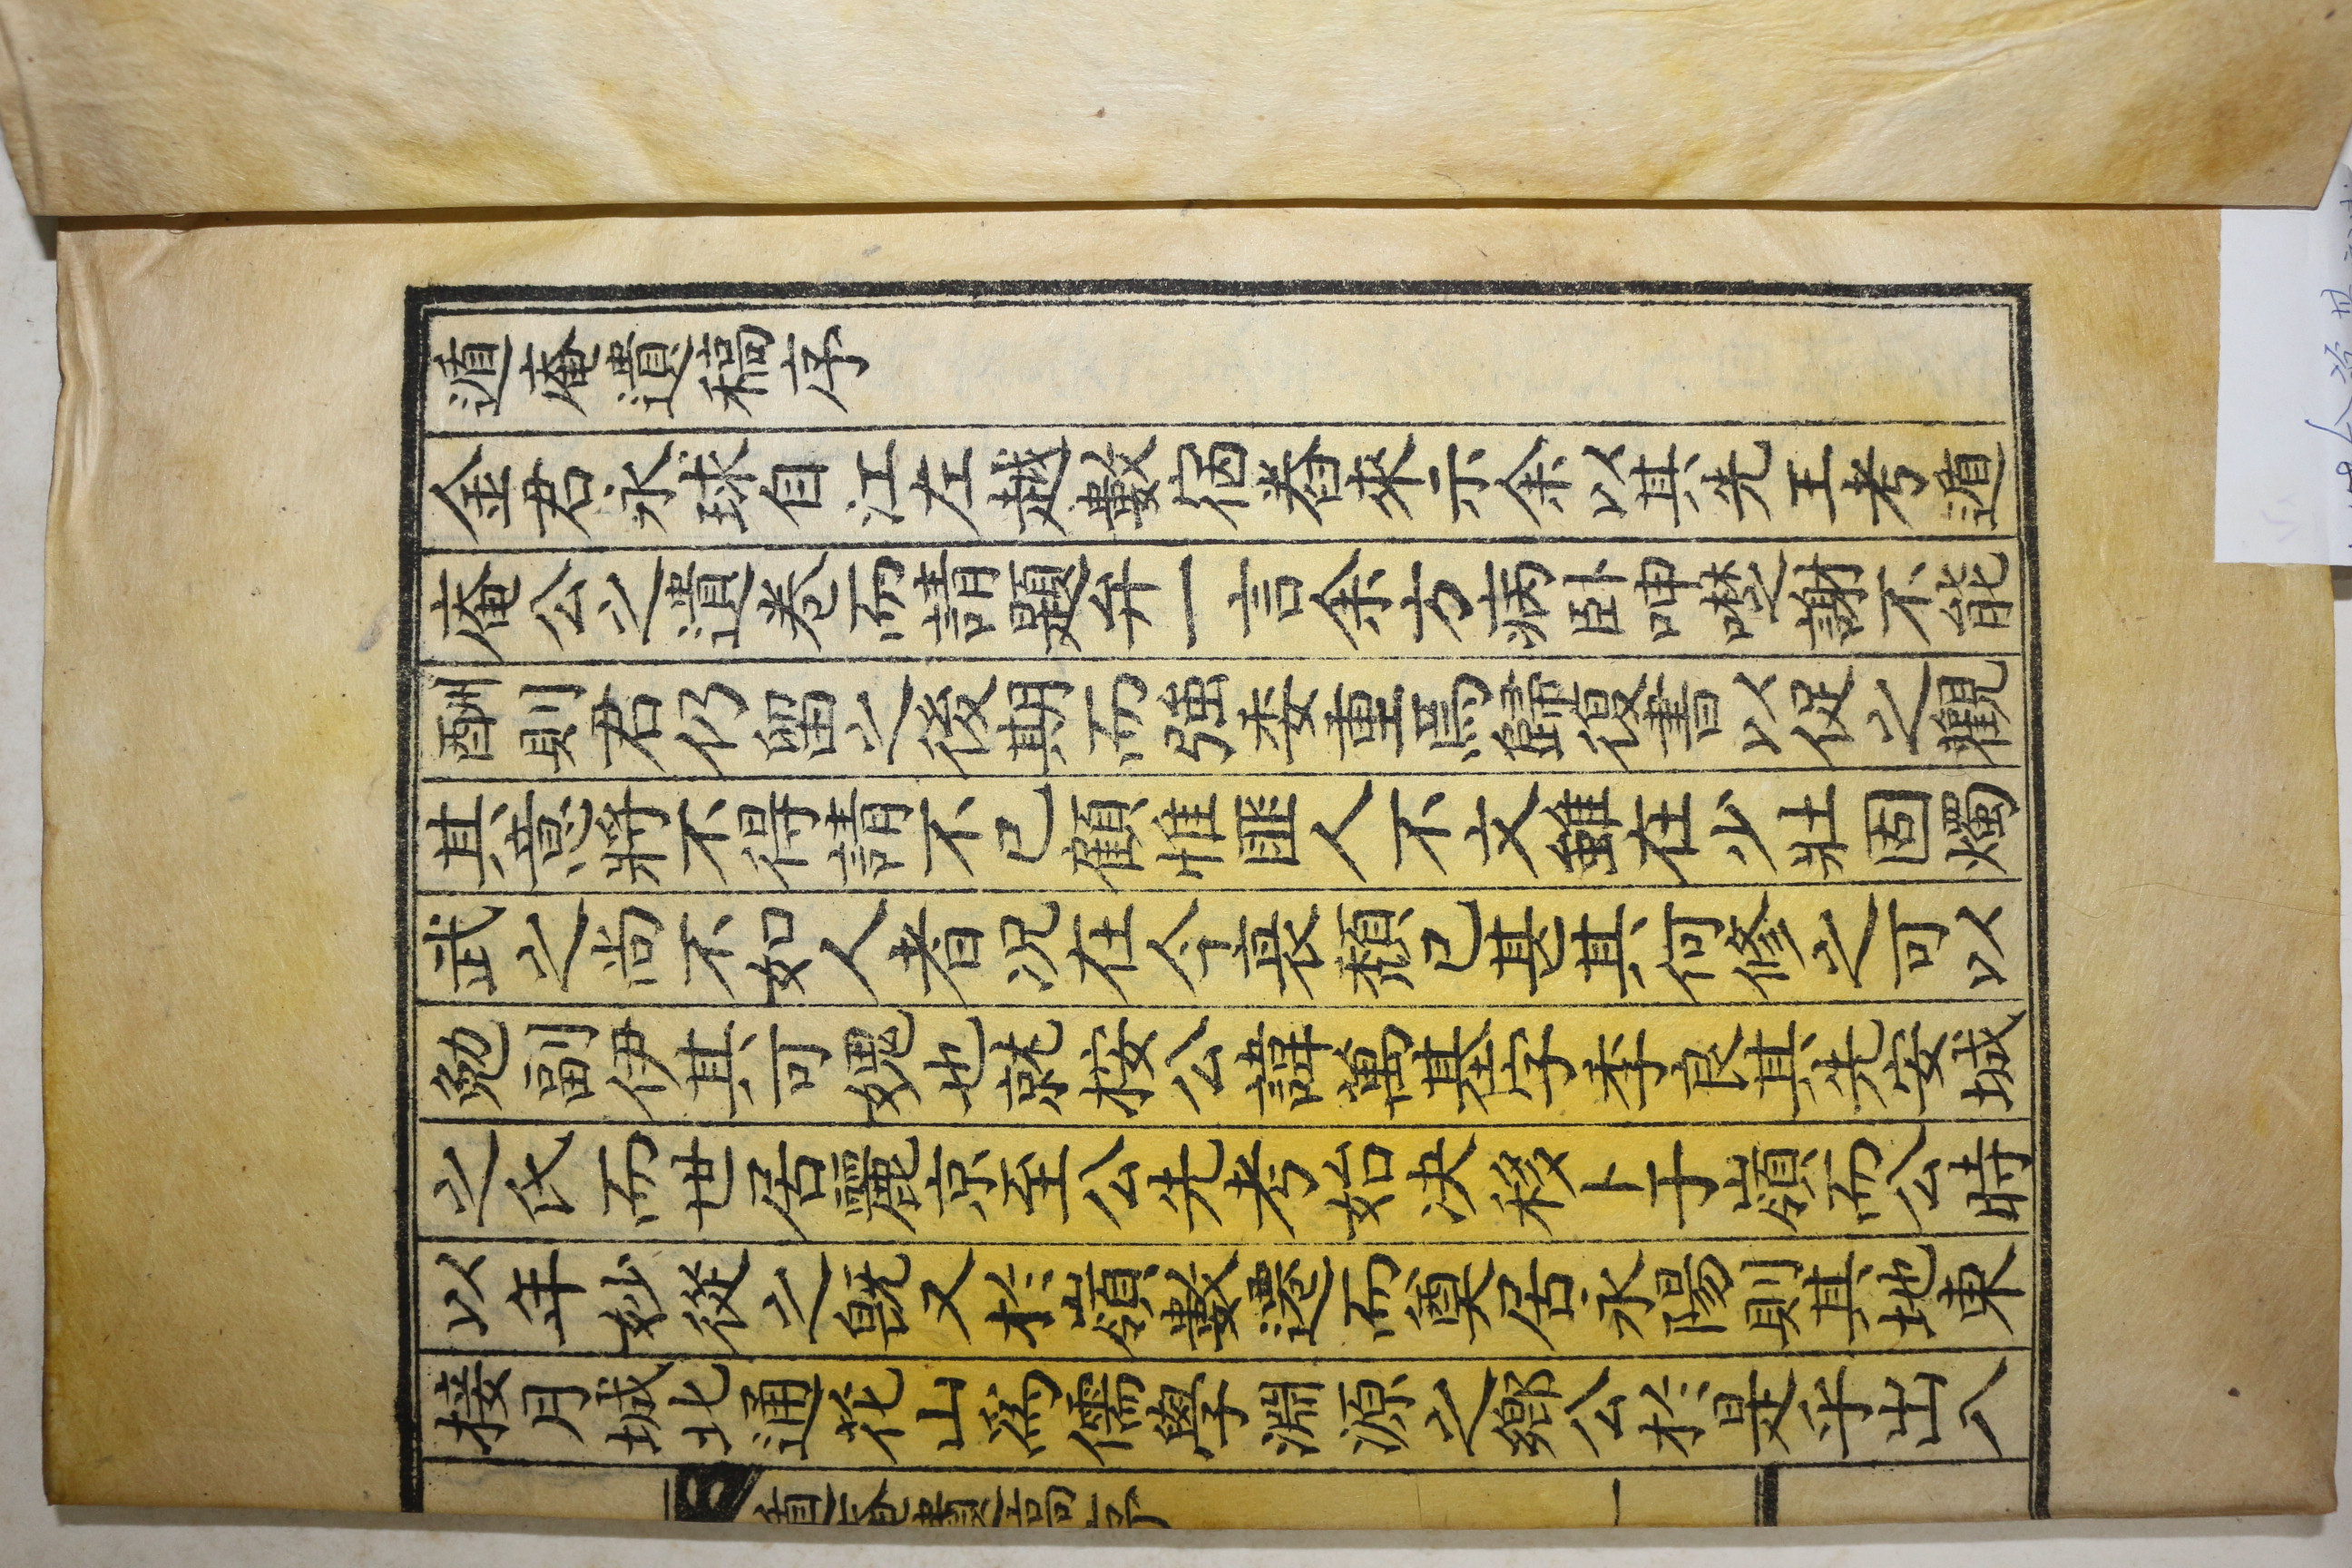 遁庵遺稿序
金君永球自江左越數宿舂來示余以其先王考遁
庵公之遺卷而請題弁一言余方病卧呻囈謝不能
酬則君仍留之後期而強委重焉歸復書以促之觀
其意將不得請不已顧惟匪人不文雖在少壯固燭
武之尚不如人者况在今衰頹已甚其何修之可以
勉副伊其可媿也就按公諱萬基字季良其先安城
之氏而世居麗京至公先考始决移卜于嶺而公時
以年妙從之旣又於嶺數遷而奠居永陽則其地東
接月城北通花山爲儒學淵源之鄉公於是乎出八
遁庵遺稿序
一